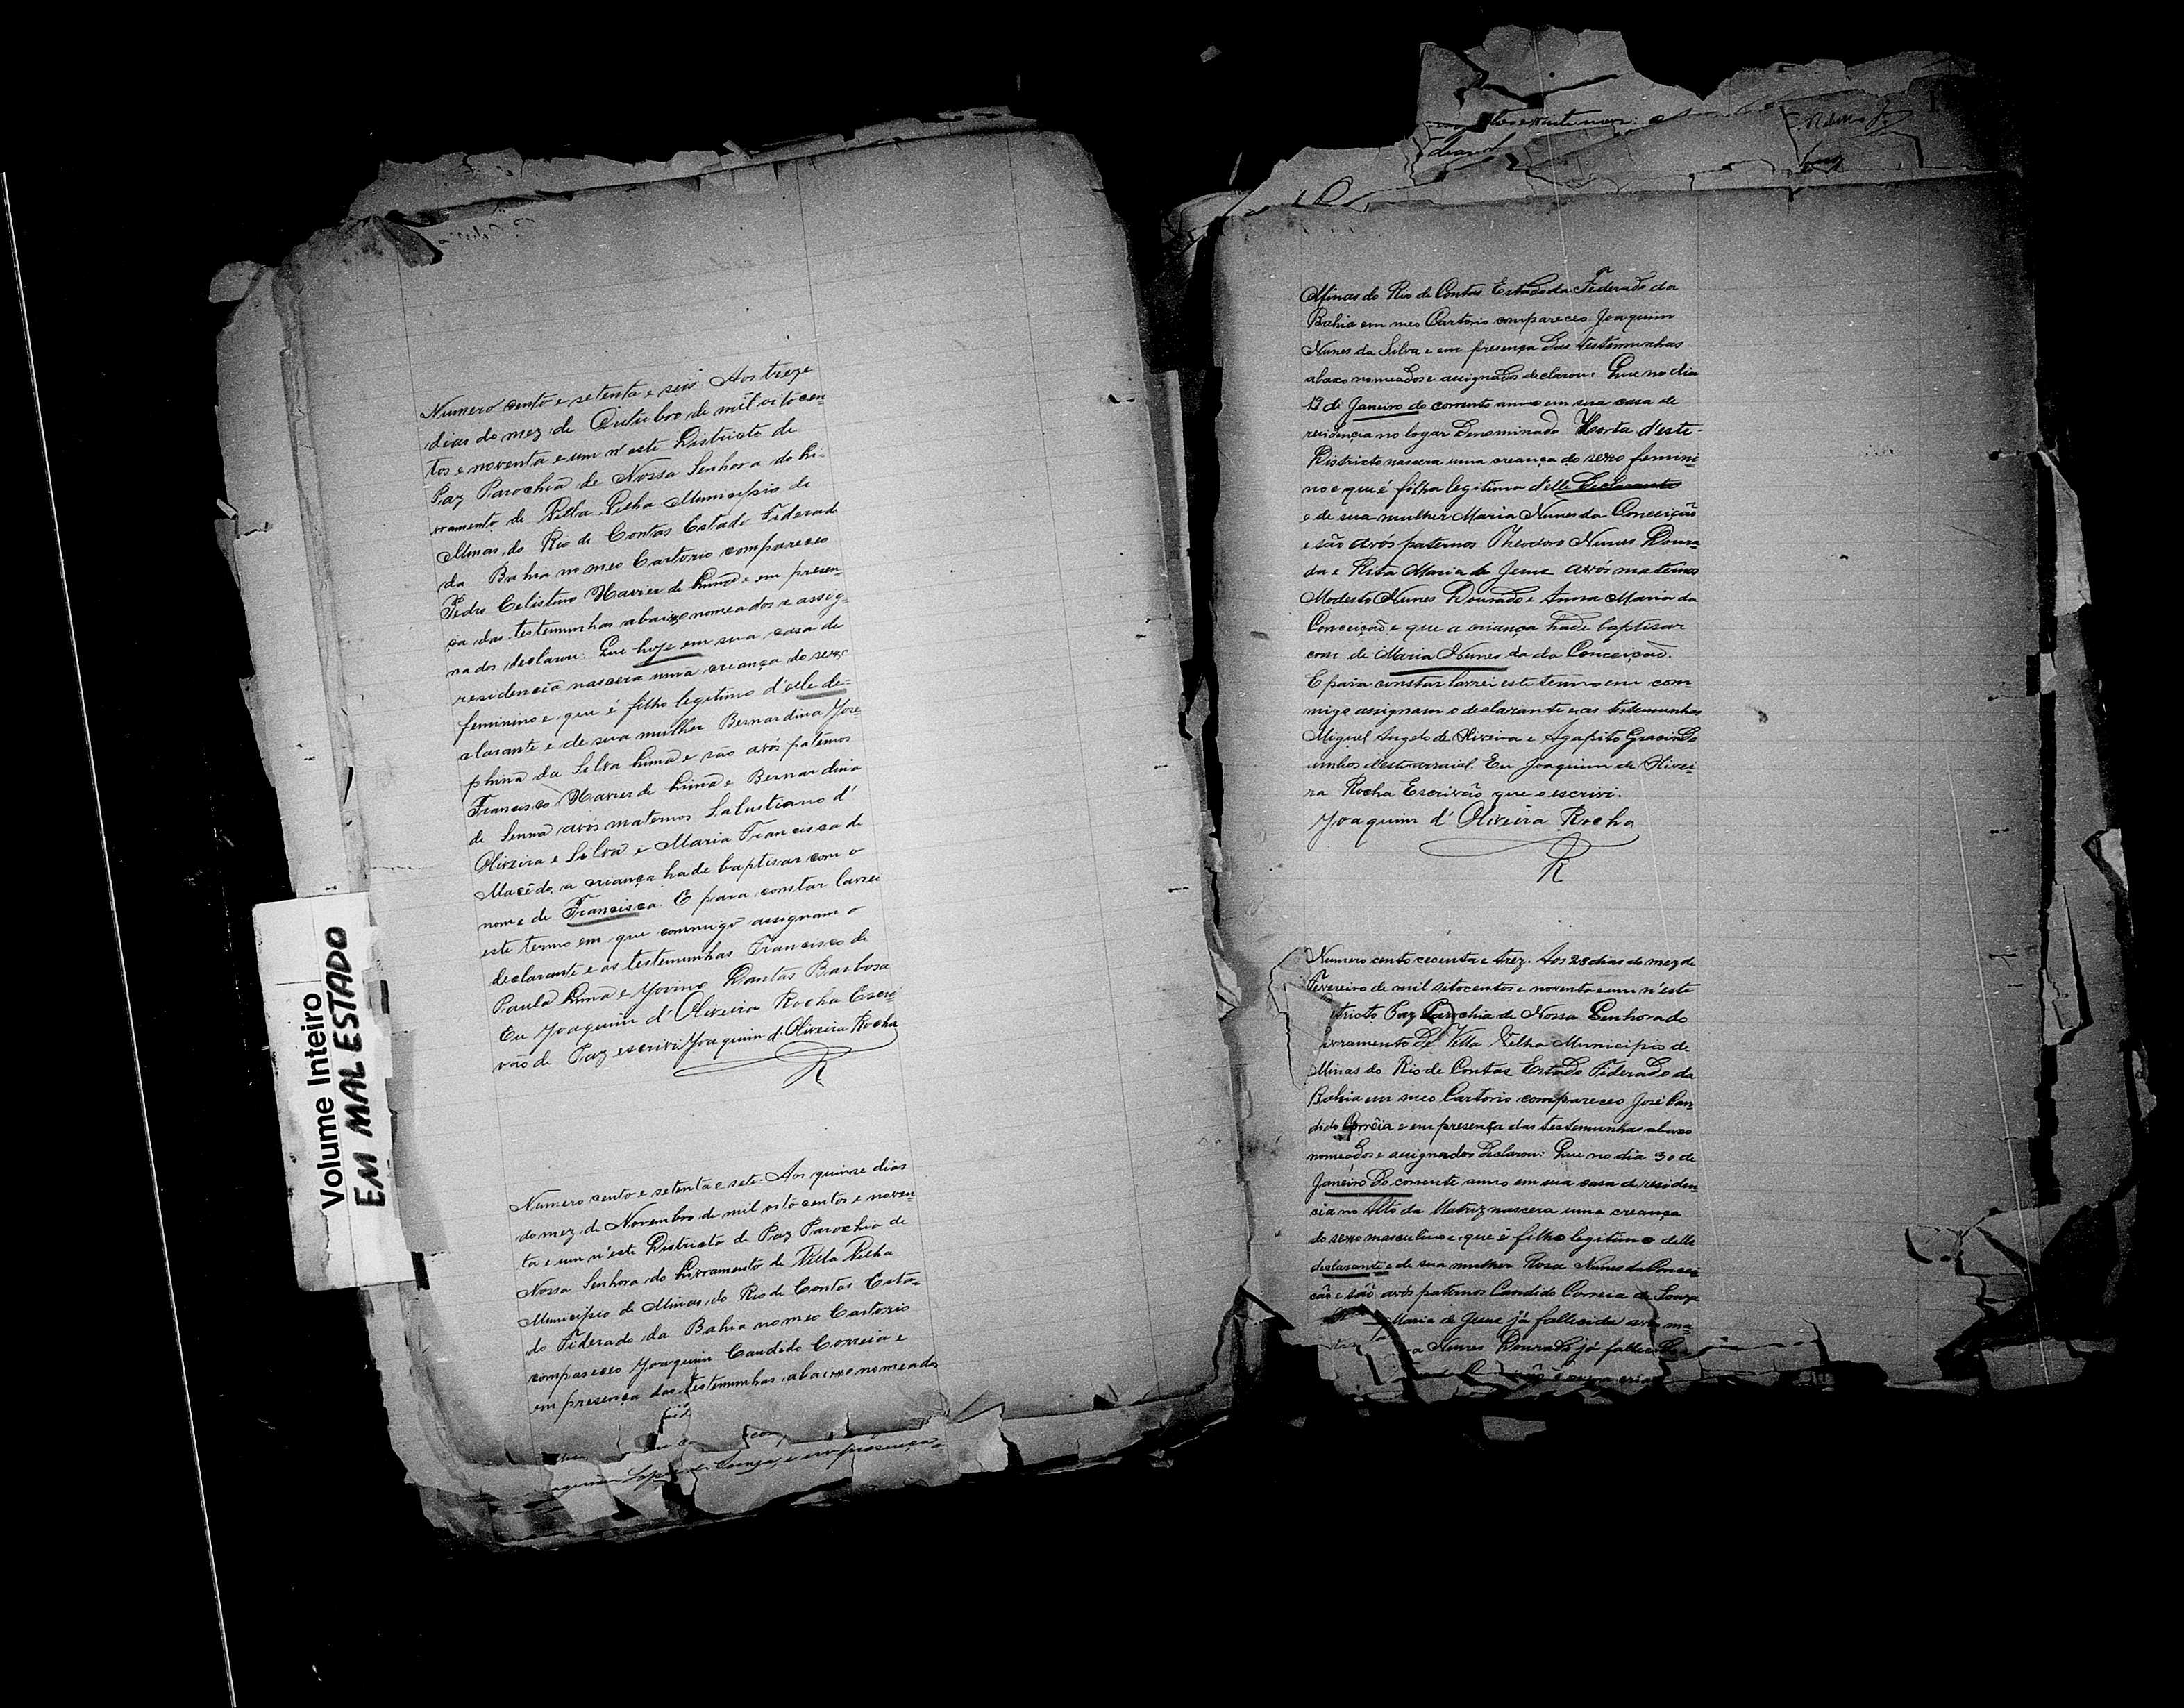 Numero cento e setenta e seis Aos treze
dias do mez de Outubro de mil oitocen
tos e noventa e um n'este Districto de
Paz Parochia de Nossa Senhora do Li-
vramento de Villa Velha Municipio de
Minas do Rio de Contas Estado Federado
da Bahia no meo Cartorio compareceo
Pedro Celistino Xavier de Lima e em presen
ça das testemunhas abaixo nomeados e assig-
nados declarou: Que hoje em sua casa de
residencia nascera uma criança do sexo
feminino e que é filho legitimo d'elle de-
clarante e de sua mulher Bernardina Jose
phina da Silva Lima e são avós paternos
Francisco Xavier de Lima e Bernardina
de Senna avós maternos Salustiano d'
Oliveira e Silva e Maria Francisca de
Macêdo, a criança hade baptisar com o
nome de Francisca. E para constar lavrei
este termo em que commigo assignam o
declarante e as testemunhas Francisco de
Paula Lima e Jovino Dantas Barbosa
Eu Joaquim d'Oliveira Rocha Escri
vão de Paz escrivi Joaquim d'Oliveira Rocha
R
Numero cento e setenta e sete. Aos quinse dias
do mez de Novembro de mil oitocentos e noven
ta e um n'este Districto de Paz Parochia de
Nossa Senhora do Livramento de Villa Velha
Municipio de Minas do Rio de Contas Esta-
do Fiderado da Bahia no meo Cartorio
compareceo Joaquim Candido Correia e
em presença das testemunhas abaixo nomeados
em presença
Volume Inteiro
EM MAL ESTADO
Minas do Rio de Contas Estado da Federado da
Bahia em meo Cartorio compareceo Joaquim
Nunes da Silva e em presença das testemunhas
abaxo nomeados e assignados declarou: Que no dia
19 de Janeiro do corrente anno em sua casa de
residença no logar Denominado Horta d'este
Districto nascera uma creança do sexo femini
no e que é filha legitima d'elle Declarante
e de sua mulher Maria Nunes da Conceição
e são avós paternos Theodoro Nunes Doura
da e Rita Maria de Jesus avós maternos
Modesto Nunes Dourado e Anna Maria da
Conceição e que a criança hade baptisar
com de Maria Nunes da da Conceição.
E para constar lavrei este termo em com-
migo assignam o declarante e as testemunhas
Miguel Angelo de Oliveira e Agapito Gracindo
ambos d'este arraial. Eu Joaquim de Olivei-
ra Rocha Escrivão que o escrivi.
Joaquim d'Oliveira Rocha
R
Numero cento cecenta e trez. Aos 28 dias do mez de
Fevereiro de mil oitocentos e noventa e um n'este
tricto Paz Parochia de Nossa Senhora do
vramento de Villa Velha Municipio de
Minas do Rio de Contas Estado Fiderado da
Bahia em meo Cartorio compareceo José Can
dido Corrêia e em presença das testemunhas abaxo
nomeados e assignados Declarou: Que no dia 30 de
Janeiro do corrente anno em sua casa de residen
cia no Alto da Matriz nascera uma creança
do sexo masculino e que é filho legitimo delle
declarante e de sua mulher Rosa Nunes da Concei
ção e são avós paternos Candido Correia de Souza
Maria de Jesus já fallecida avós ma
Nunes Dourado já falle